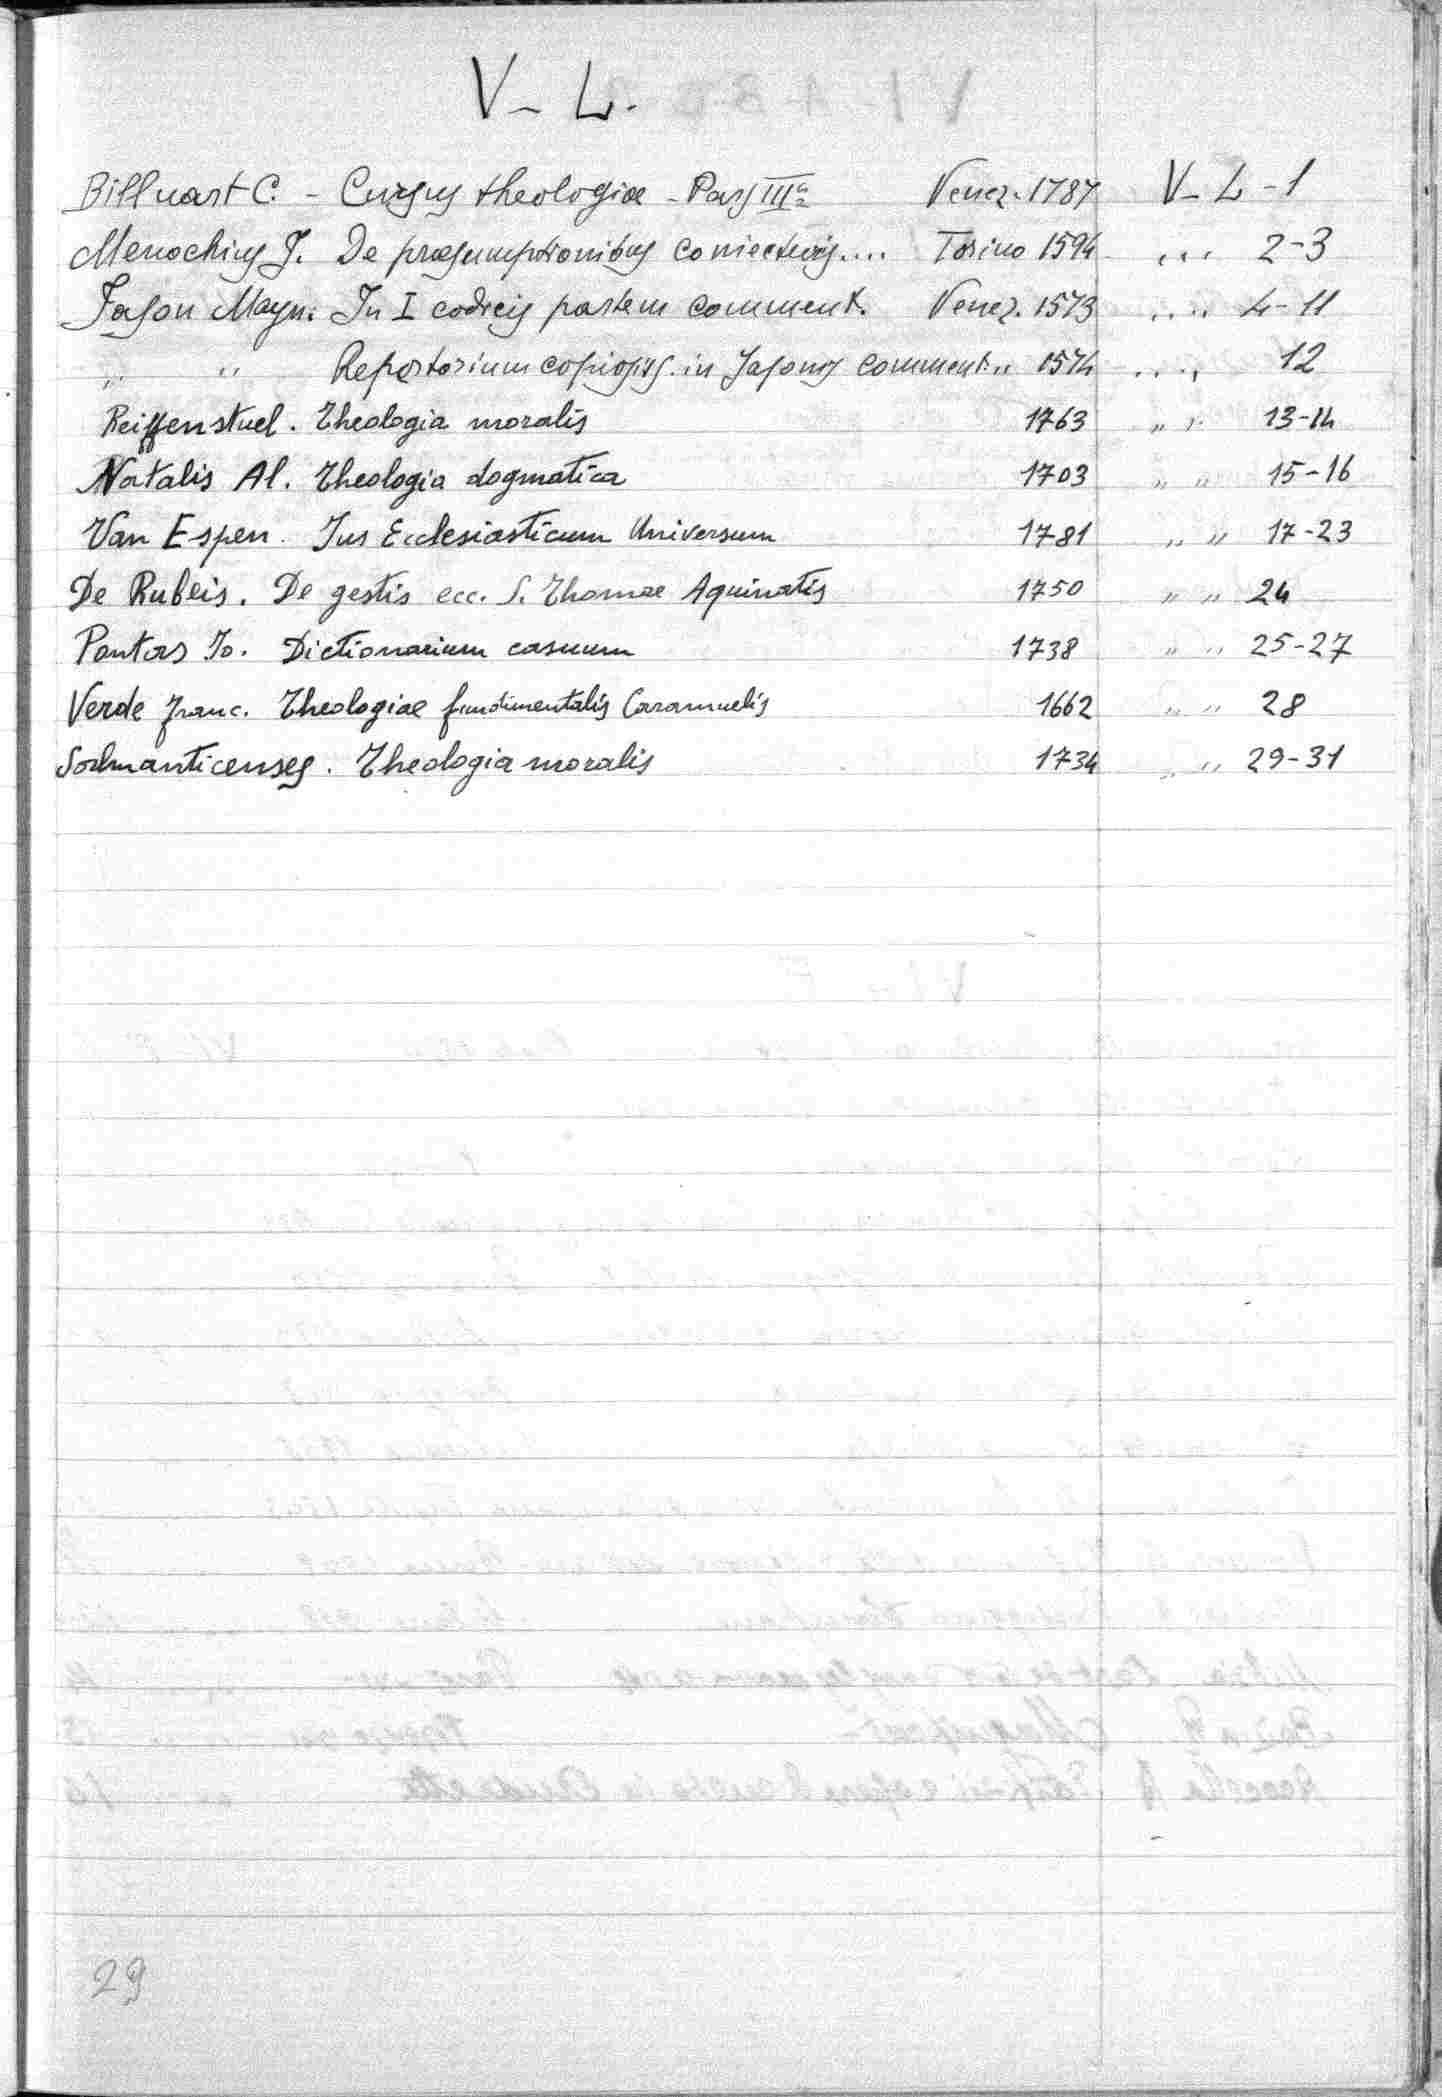 V - L.
Billuart C. - Cursus theologiae - Pars IIIa Venez. 1787 V - L - 1
Menochius J. De praesumptionibus coniecturis.... Torino 1594 " " 2-3
Jason Mayn. In I codicis partem comment. Venez. 1573 " " 4-11
" " Repertorium copiosis. in Jasonis comment. " 1574 " " 12
Reiffenstuel. Theologia moralis 1763 " " 13-14
Natalis Al. Theologia dogmatica 1703 " " 15-16
Van Espen. Jus Ecclesiasticum Universum 1781 " " 17-23
De Rubeis. De gestis ecc. S. Thomae Aquinatis 1750 " " 24
Pontas Jo. Dictionarium casuum 1738 " " 25-27
Verde franc. Theologiae fundimentalis Caramuelis 1662 " " 28
Salmanticenses. Theologia moralis 1734 " " 29-31
29